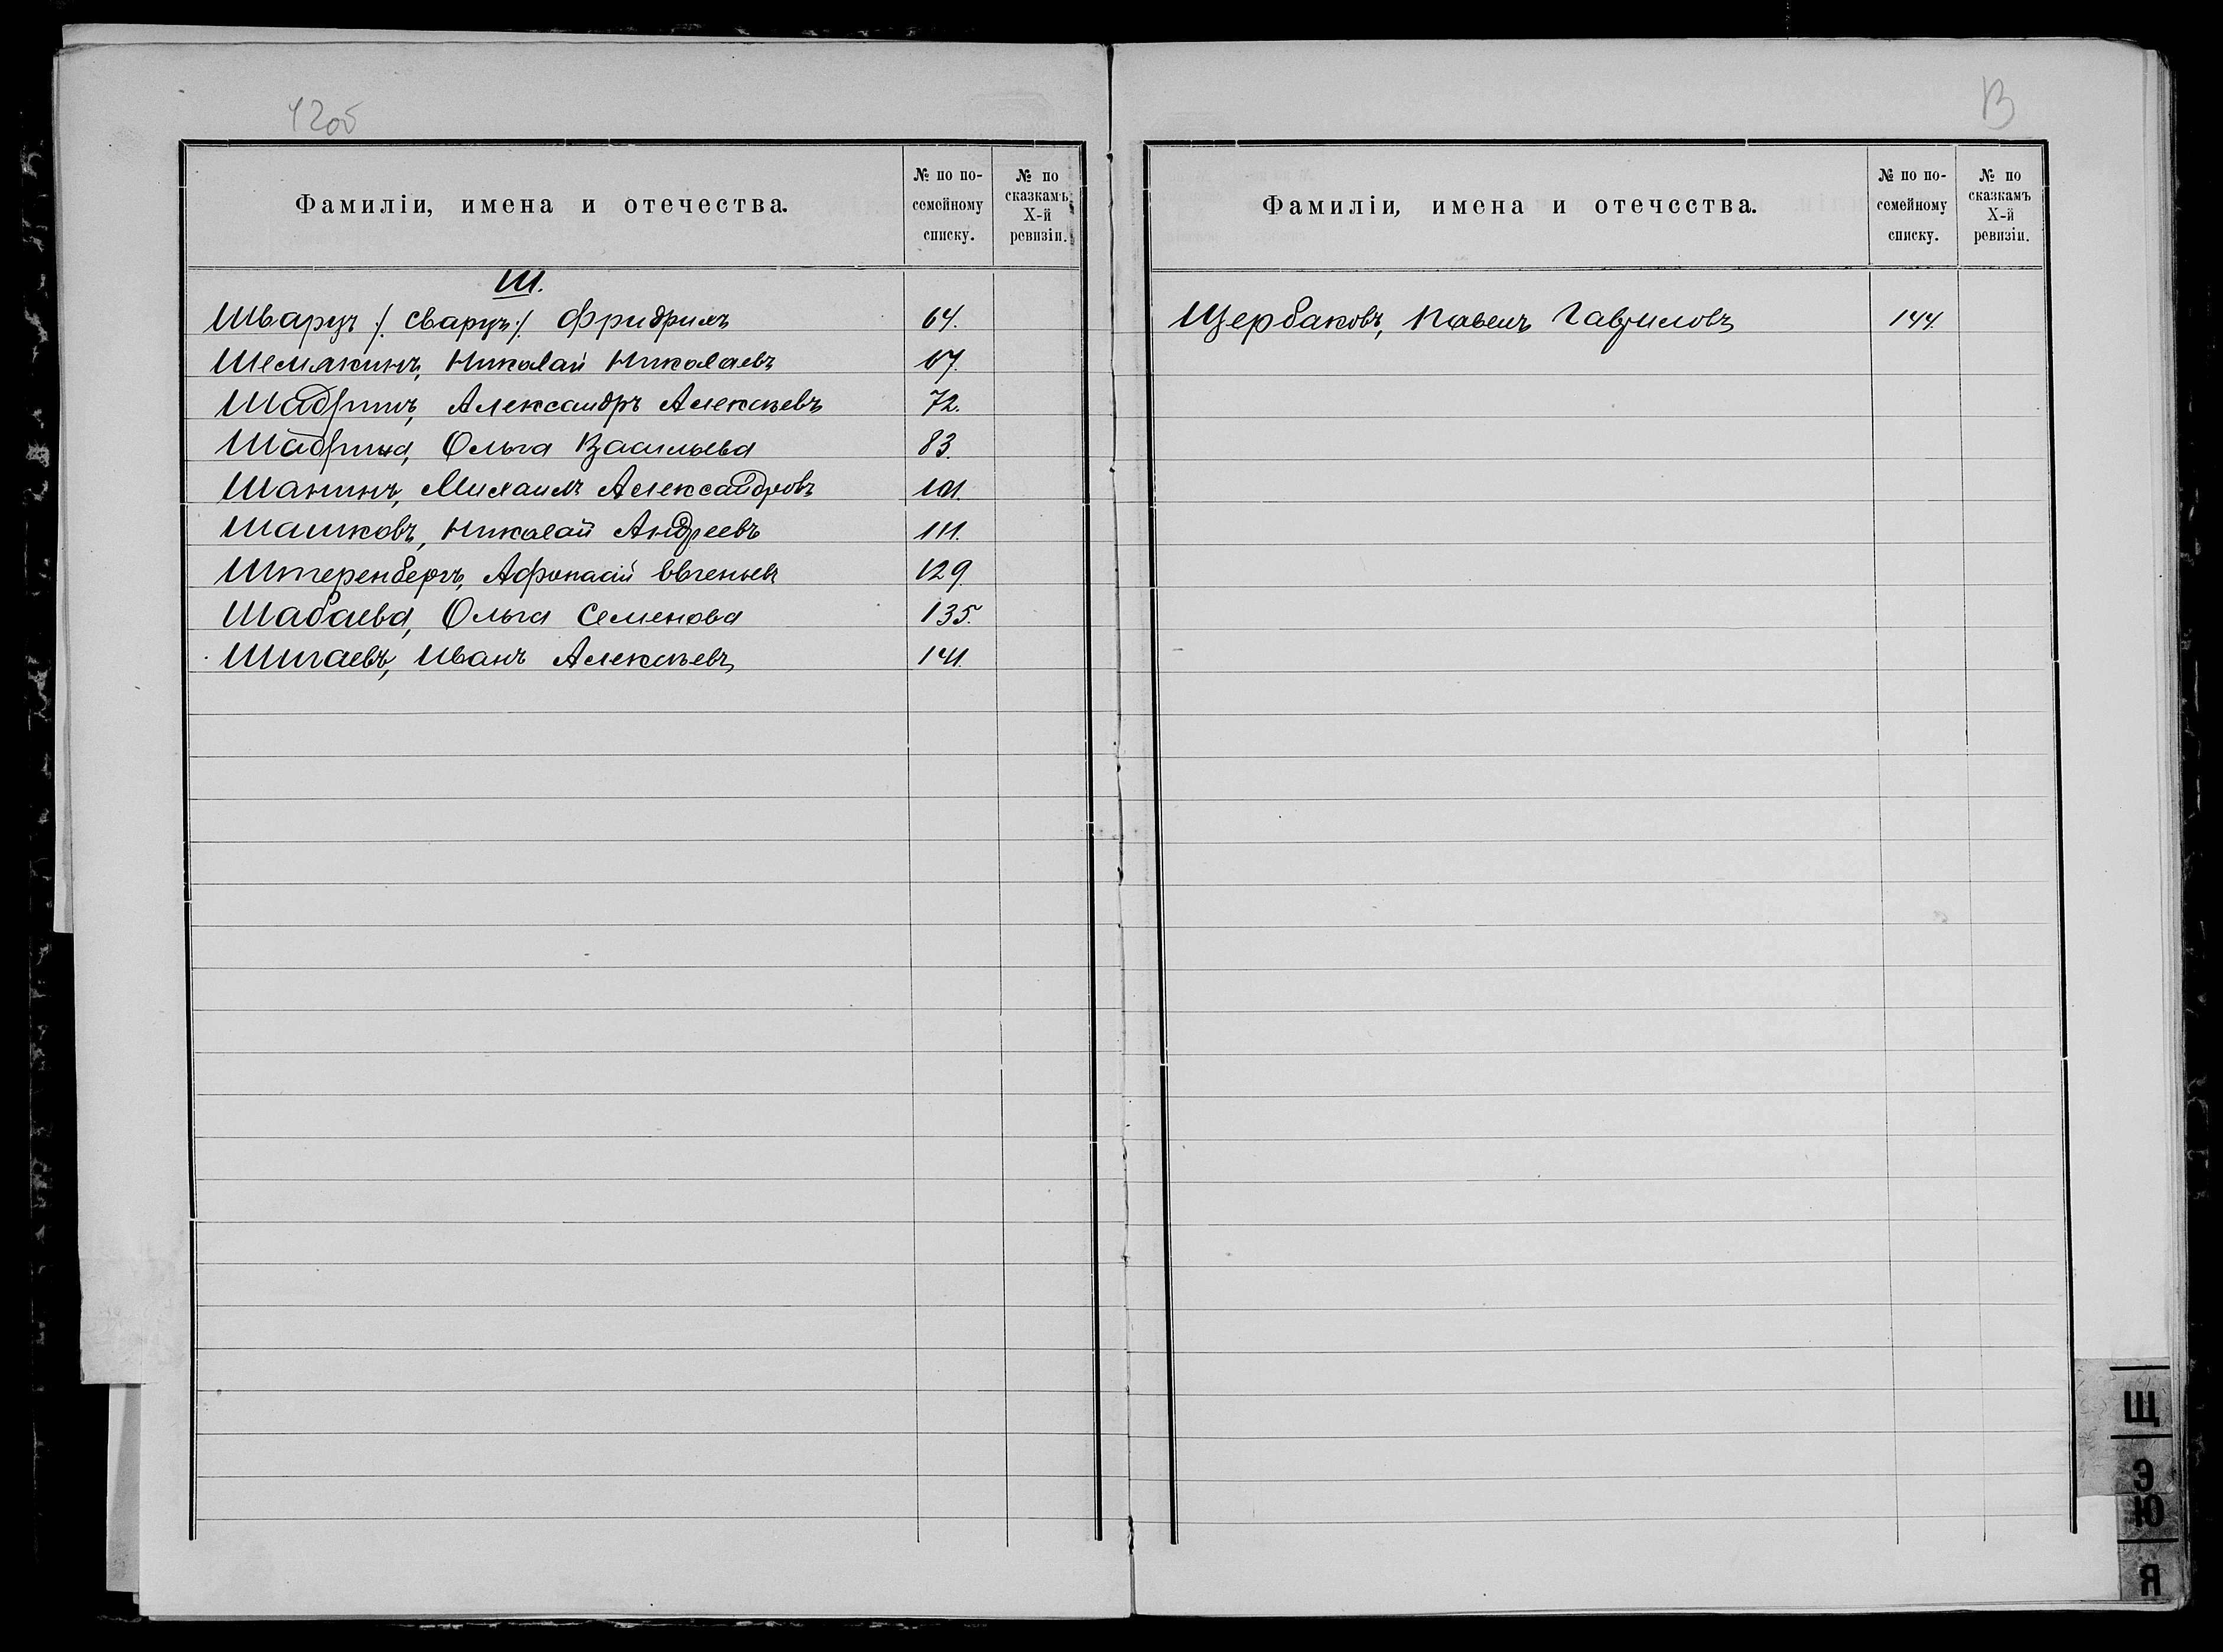 12об
Фамиліи, имена и отечества.
№ по по-
семейному
списку.
№ по
сказкамъ
X-й
ревизіи.
Ш.
Шварцъ /: Сварцъ:/ Фридрихъ 64.
Шемякинъ, Николай Николаевъ 67.
Шадринъ, Александръ Алексѣевъ 72.
Шадрина, Ольга Васильева 83.
Шанинъ, Михаилъ Александровъ 101.
Машковъ, Николай Андреевъ 111.
Штеренбергъ, Афонасій Евгеньевъ 129.
Шабаева, Ольга Семенова 135.
Шигаевъ, Иванъ Алексѣевъ 141.
13
Фамиліи, имена и отечества.
№ по по-
семейному
списку.
№ по
сказкамъ
X-й
ревизіи.
Щербаковъ, Павелъ Гавриловъ 144.
Щ
Э
Ю
Я